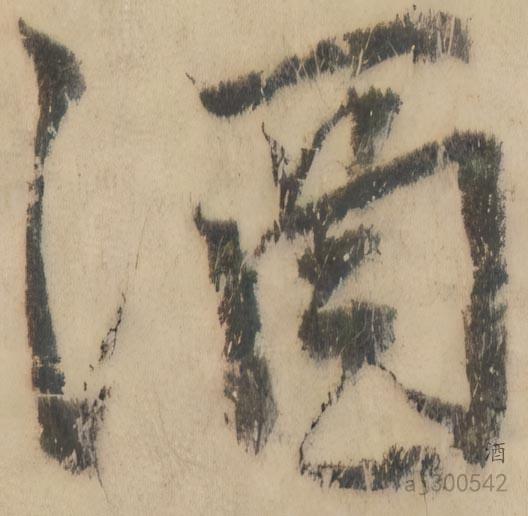 酒
酒
a_300542